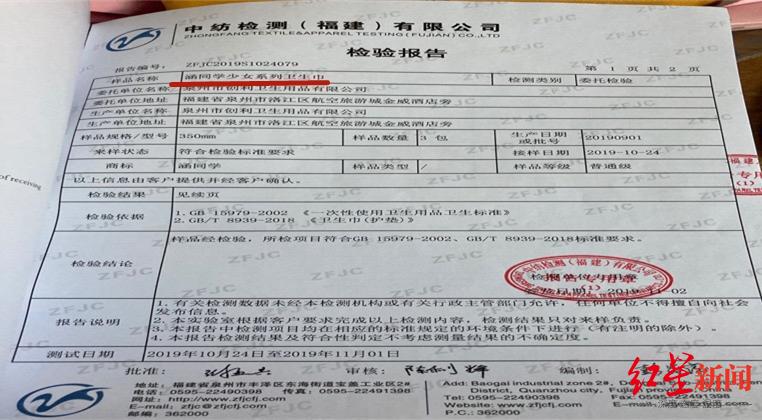 中纺检测（福建）有限公司
ZHONGFANG TEXTILE&APPAREL TESTING(FUJIAN)CO.,LTD
检验报告
报告编号: ZFJC2019S1024079 第 1 页共 2 页
样品名称 涵同学少女系列卫生巾 检测类别 委托检验
委托单位名称 泉州市创利卫生用品有限公司
委托单位地址 福建省泉州市洛江区航空旅游城金威酒店旁
生产单位名称 泉州市创利卫生用品有限公司
生产单位地址 福建省泉州市洛江区航空旅游城金威酒店旁
样品规格/型号 350mm 样品数量 3 包 生产日期或批号 20190901
来样状态 符合检验标准要求 接样日期 2019-10-24
商标 涵同学 样品类型 / 样品等级 普通级
以上信息由客户提供并经客户确认。
of receiving
检验结果 见续页
检验依据 1.GB 15979-2002 《一次性使用卫生用品卫生标准》
2.GB/T 8939-2018 《卫生巾(护垫)》
检验结论 样品经检验，所检项目符合GB 15979-2002、GB/T 8939-2018标准要求。
中纺检测(福建)有限公司
报告专用章
报告说明 1.有关检测数据未经本检测机构或有关行政主管部门允许，任何单位不得擅自向社会
发布信息。
2.本实验室根据客户要求完成以上检测内容，检测结果只对来样负责。
3.本报告中检测项目均在相应的标准规定的环境条件下进行（有注明的除外）。
4.本报告检测结果及符合性判定不考虑测量结果的不确定度。
测试日期 2019年10月24日至2019年11月01日
批准: 审核: 编制:
地址: 福建省泉州市丰泽区东海街道宝盖工业区2#
电话: 0595-22490398 传真: 0595-22491398
网址: http://www.zfjcfj.com
E-mail: zfjc@zfjcfj.com
邮编: 362000
Add: Baogai industrial zone 2#, D
District, Quanzhou city, Fujian province,china
Tel: 0595-22490398
E-mail:
P.C: 362000
红星新闻